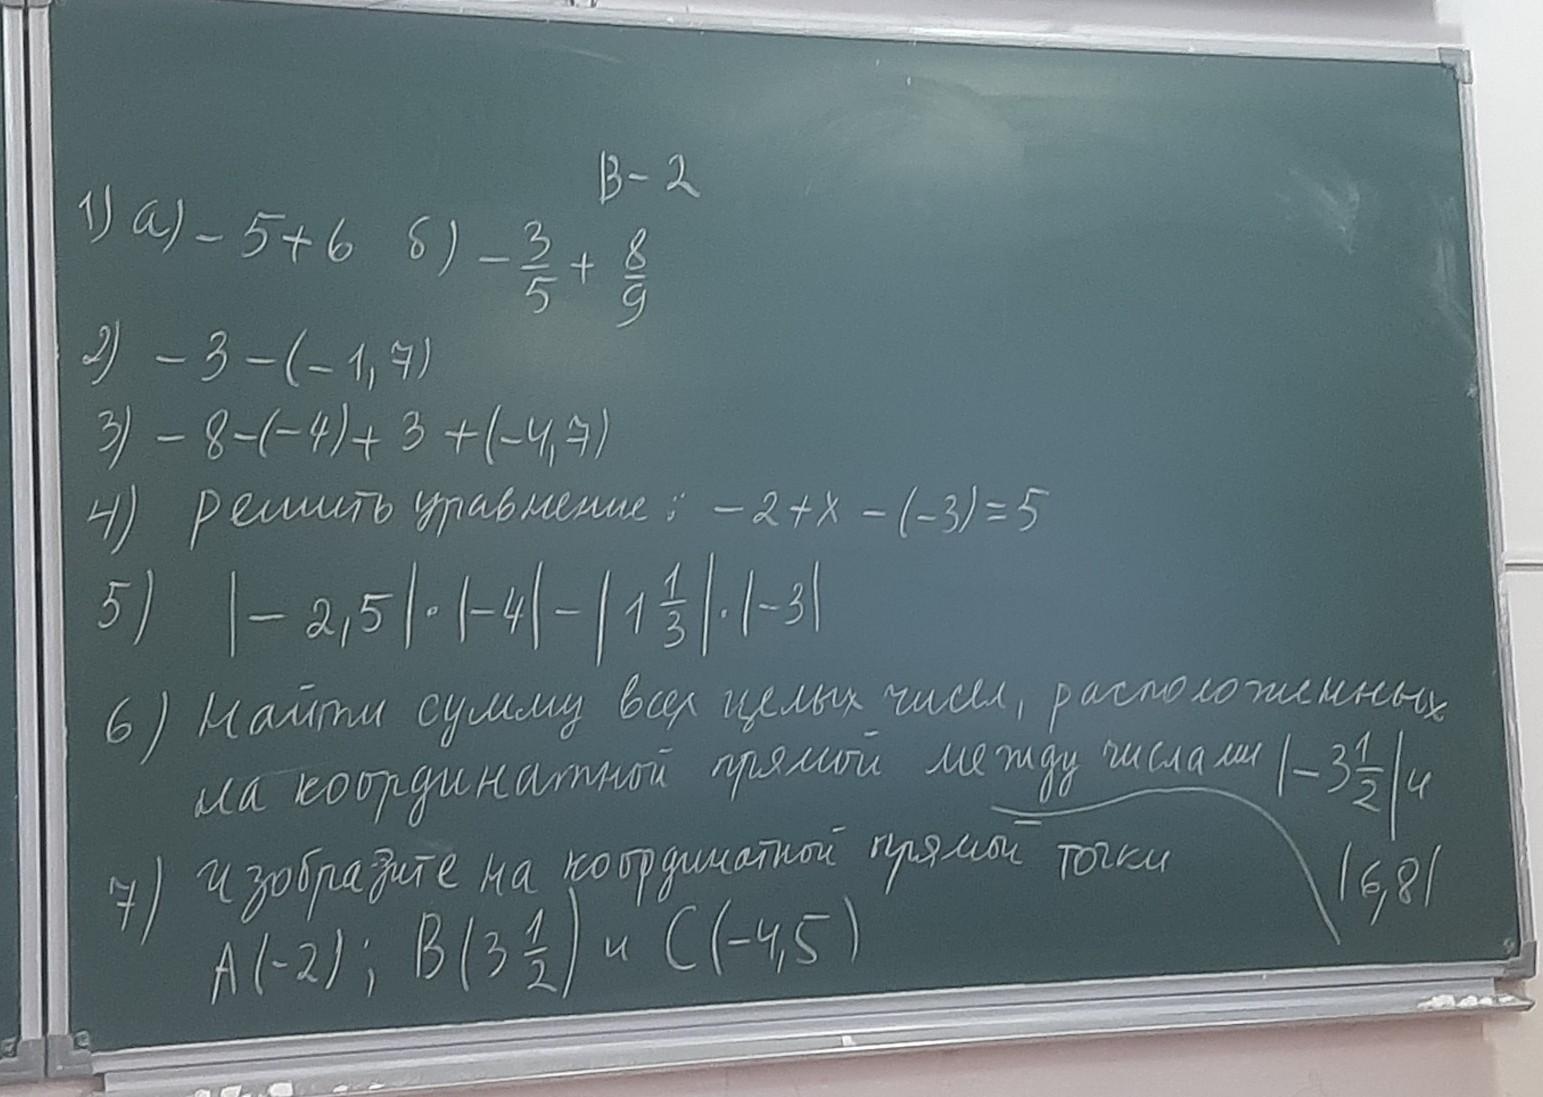 В-2
1) а) -5+6 б) -3/5 + 8/9
2) -3-(-1,7)
3) -8-(-4)+3+(-4,7)
4) решить уравнение: -2+х-(-3)=5
5) |-2,5|·|-4|-|1 1/3|·|-3|
6) Найти сумму всех целых чисел, расположенных
на координатной прямой между числами |-3 1/2| и
|6,8|
7) Изобразите на координатной прямой точки
А(-2); В(3 1/2) и С(-4,5)